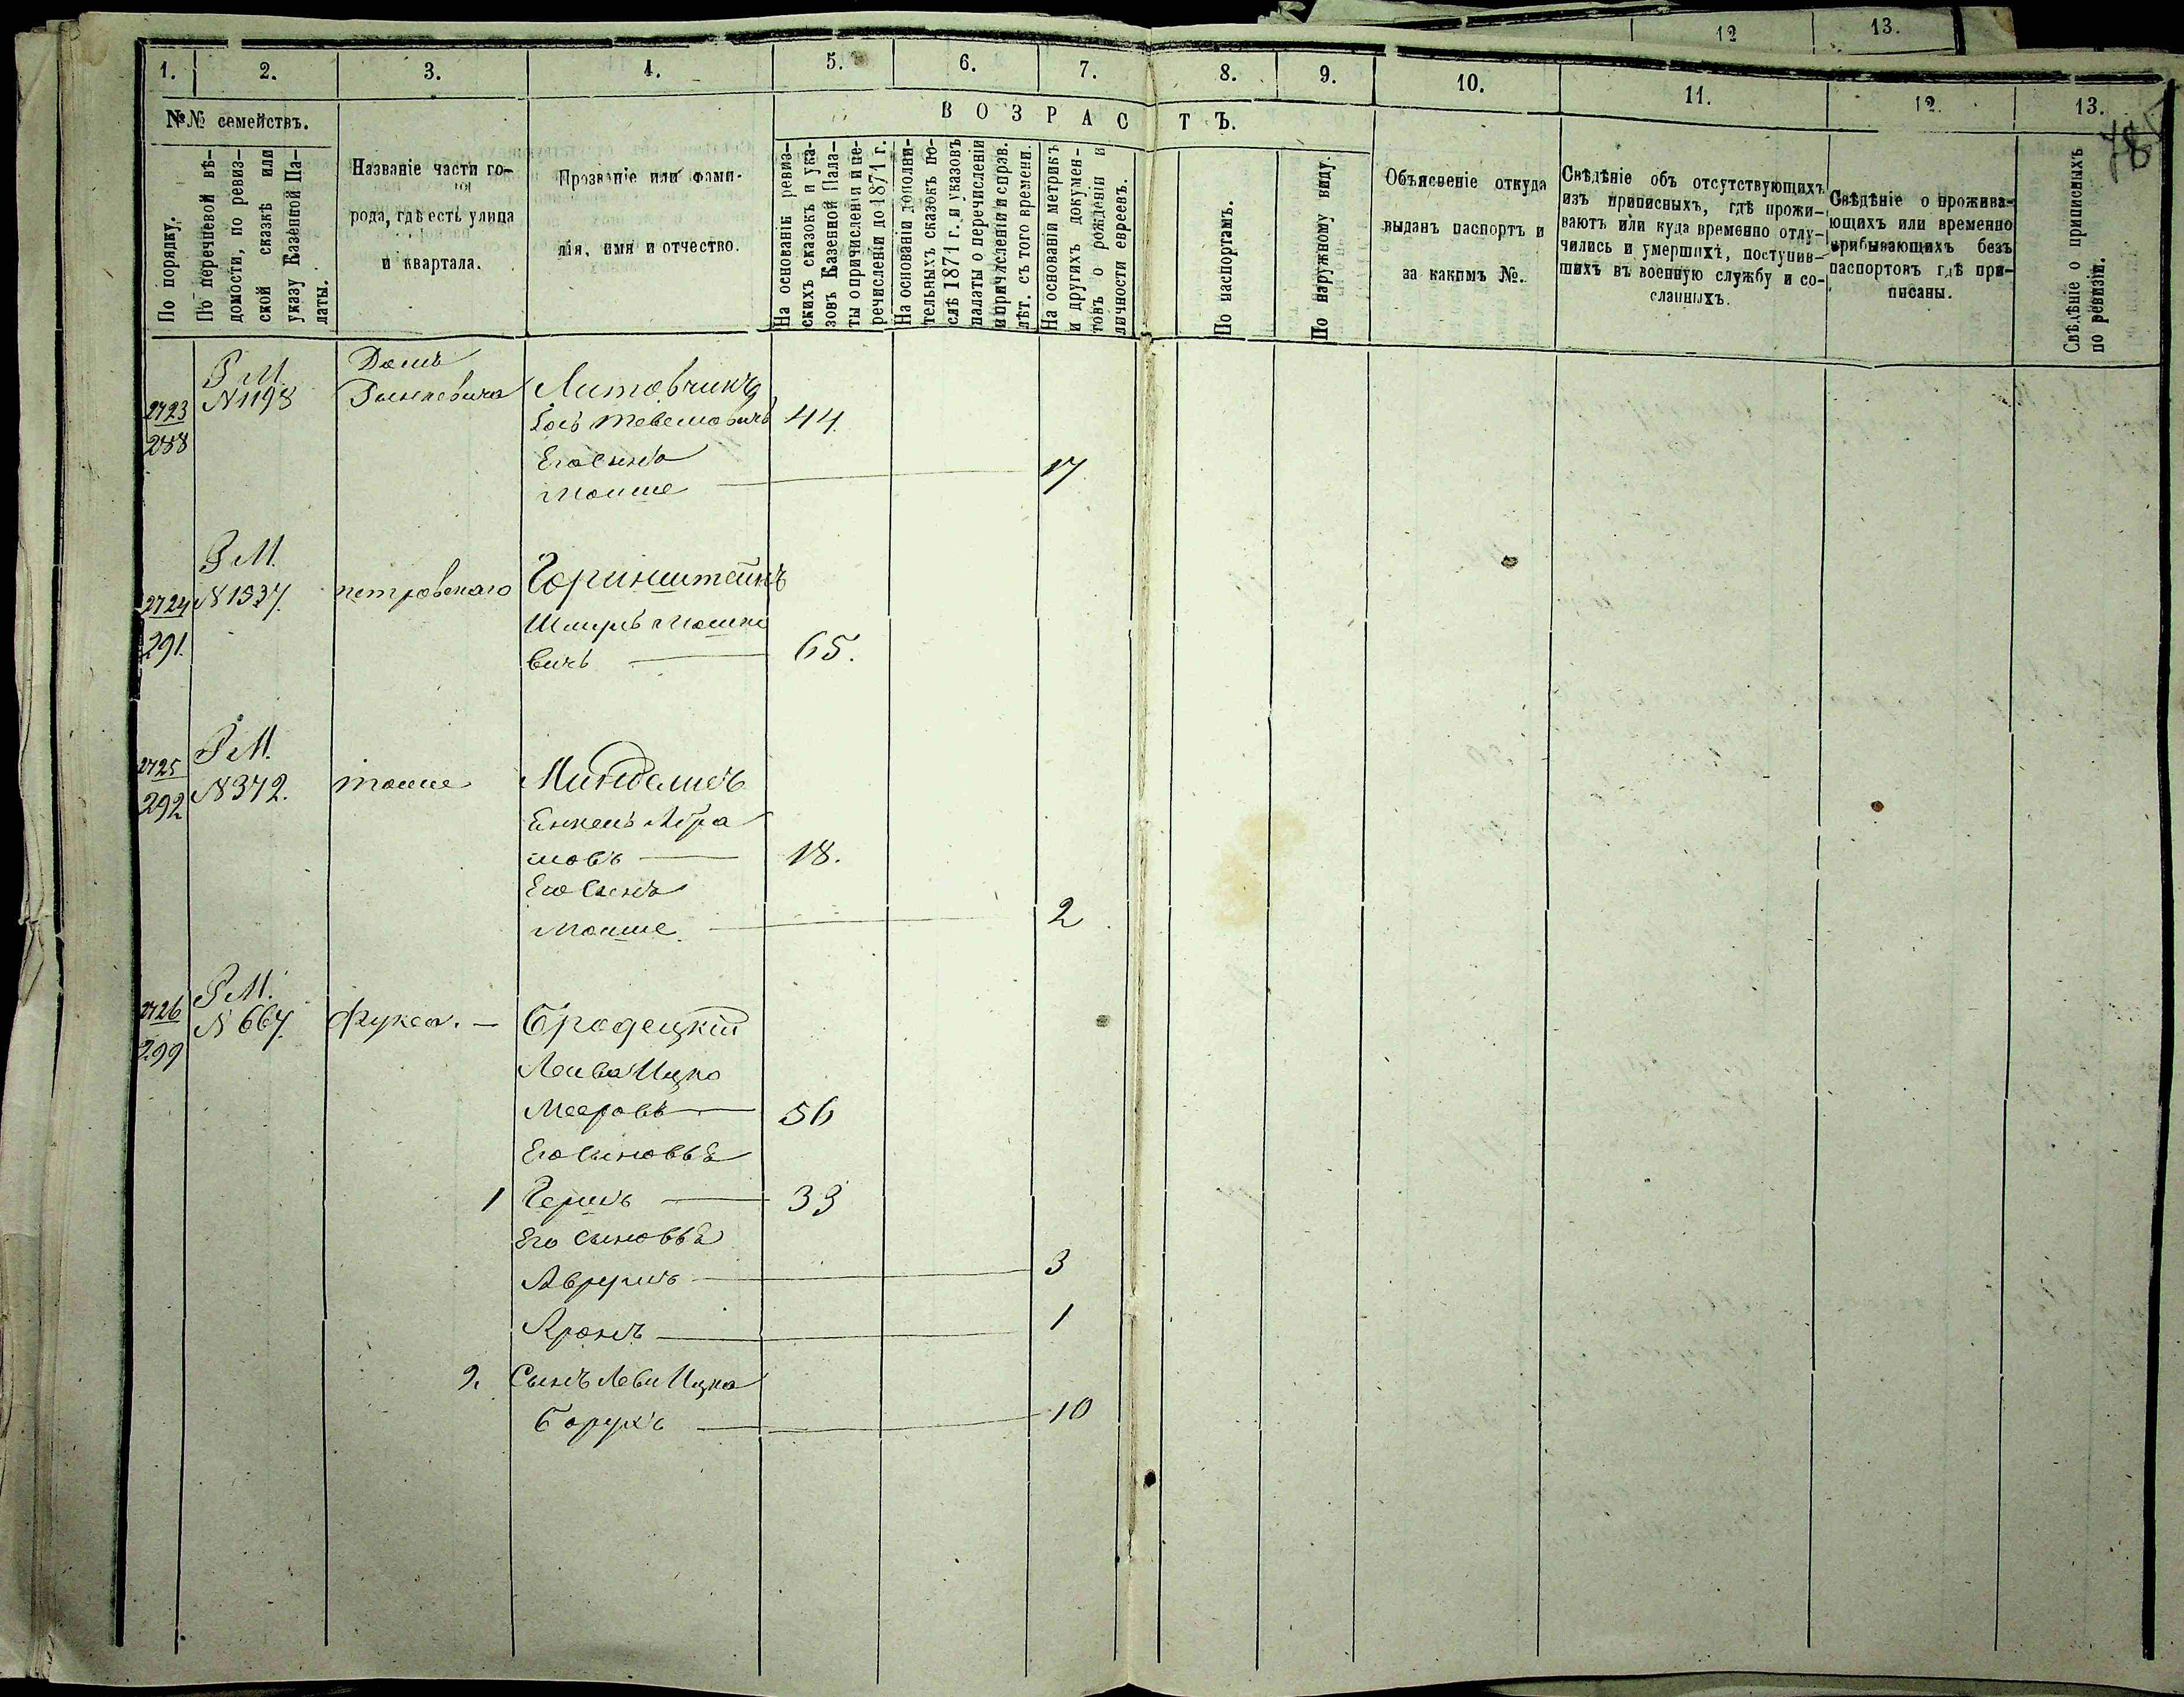 12 13.
1. 2. 3. 4. 5. 6. 7. 8. 9. 10. 11. 12. 13.
78
№№ семействъ.
По порядку.
По перечневой вѣ-
домости, по ревиз-
ской сказкѣ или
указу Казенной Па-
латы.
Названіе части го-
рода, гдѣ есть улица
и квартала.
Прозваніе или фами-
лія, имя и отчество.
ВОЗРАСТЪ.
На основаніи ревиз-
скихъ сказокъ и ука-
зовъ Казенной Пала-
ты о причисленіи и пе-
речисленіи до 1871 г.
На основаніи дополни-
тельныхъ сказокъ по-
слѣ 1871 г. и указовъ
палаты о перечисленіи
и причисленіи и справ.
лѣт. съ того времени.
На основаніи метрикъ
и другихъ докумен-
товъ о рожденіи и
личности евреевъ.
По паспортамъ.
По наружному виду.
Объясненіе откуда
выданъ паспортъ и
за какимъ №.
Свѣдѣніе объ отсутствующихъ
изъ приписныхъ, гдѣ прожи-
ваютъ или куда временно отлу-
чились и умершихъ, поступив-
шихъ въ военную службу и со-
сланныхъ.
Свѣдѣніе о прожива-
ющихъ или временно
прибывающихъ безъ
паспортовъ гдѣ при-
писаны.
Свѣдѣніе о приписныхъ
по ревизіи.
2723
288
Р М.
N 1198
Домъ
Литовчикъ
44
Его сынъ
Мошше 17
2724
291.
Р М.
N 1337.
петровскаго
Горинштейнъ
Шмуль Мошко
вичъ 65.
2725
292
Р М.
N 372.
тоше
Минделисъ
Янкель Абра
мовъ 18.
Его сынъ
Мошше 2
2726
299
Р М.
N 667.
Фукса. —
Бродецкій
Лейба Ицко
Мееровъ 56
Его сыновья
1 Гершъ 33
Его сыновья
Аврумъ 3
Аронъ 1
2. Сынъ Лейби Ицка
Борухъ 10